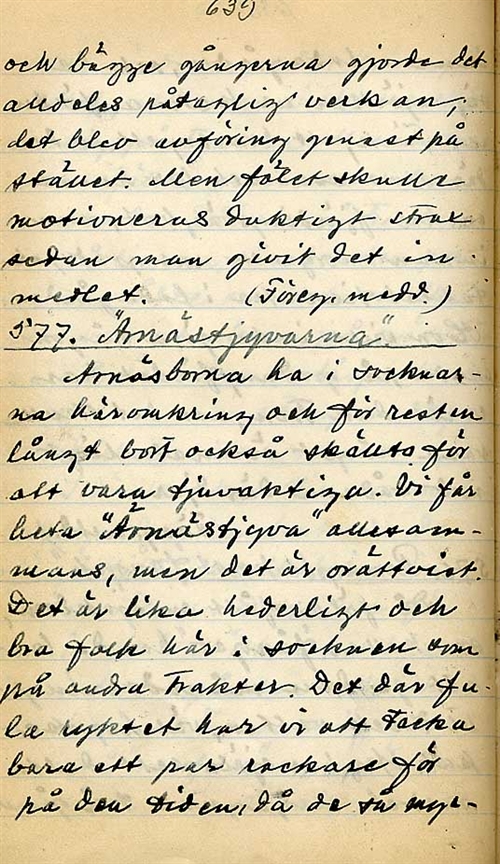 639
och bägge gångerna gjorde det
alldeles påtaglig verkan;
det blev avföring genast på
stället. Men fölet skulle
motioneras duktigt strax
sedan man givit det in
medlet. (Föreg. medd.)
577. "Arnästjyvarna".
Arnäsborna ha i socknar-
na häromkring och för resten
långt bort också skällts för
att vara tjuvaktiga. Vi får
heta "Årnästjyva" allesam-
mans, men det är orättvist.
Det är lika hederligt och
bra folk här i socknen som
på andra trakter. Det där fu-
la ryktet har vi att tacka
bara ett par rackare för
på den tiden, då de så myc-